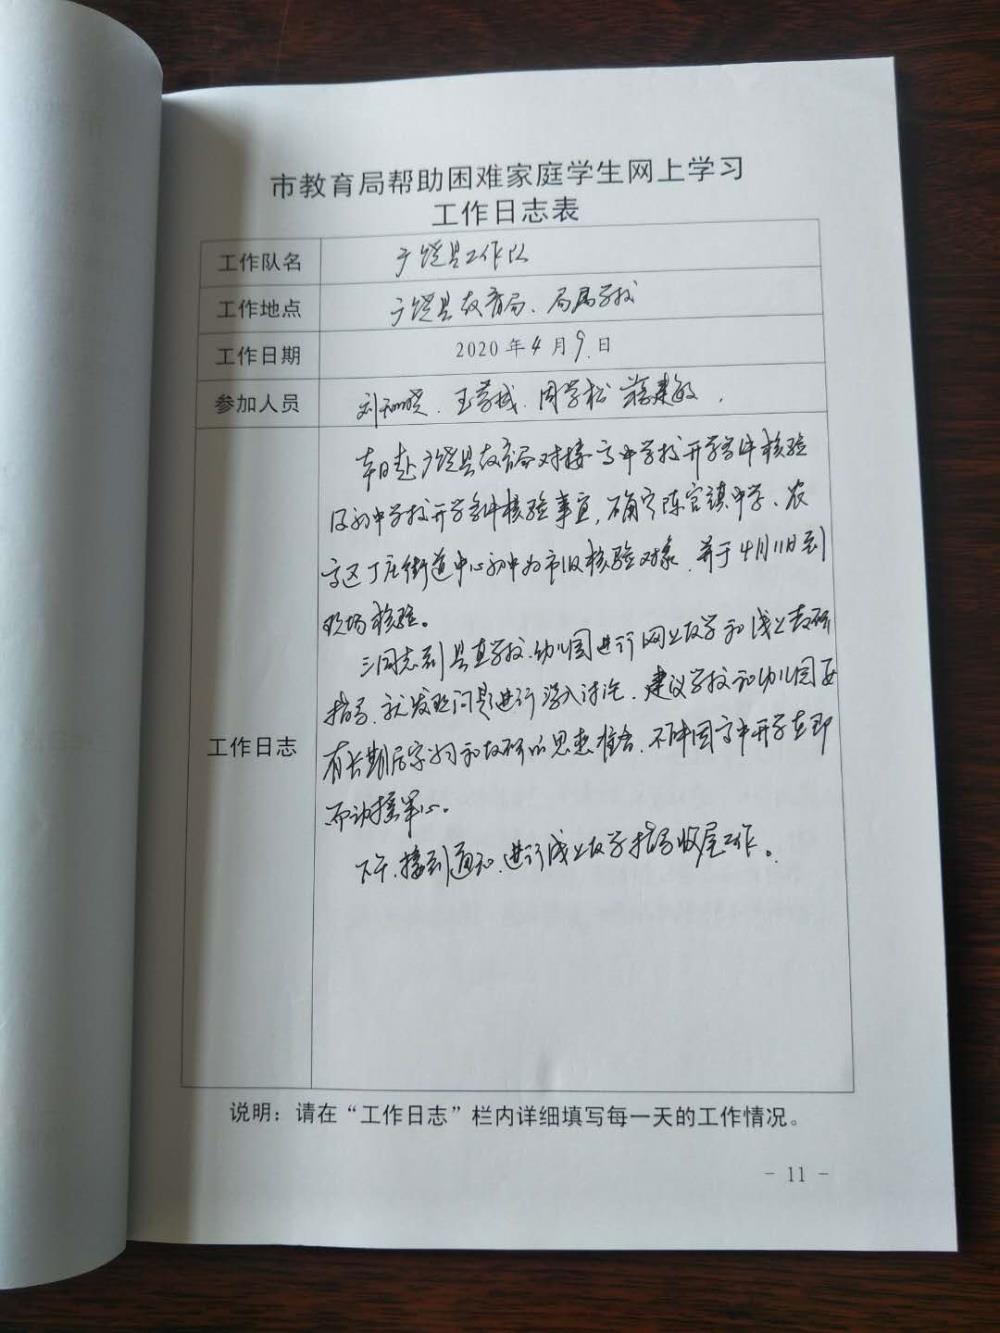 市教育局帮助困难家庭学生网上学习
工作日志表
工作队名 广饶县工作队
工作地点 广饶县教育局、局属学校
工作日期 2020年4月9日
参加人员 刘 王 周学松 蒋建敏.
工作日志
本日赴广饶县教育局对接高中学校开学条件核验
及初中学校开学条件核验事宜,确定陈官镇中学、农
高区丁庄街道中心初中为市级核验对象,并于4月11日到
现场核验。
三同志到县直学校、幼儿园进行网上教学和线上教研
指导,就发现问题进行深入讨论,建议学校和幼儿园要
有长期居家学习和教研的思想准备,不要因高中开学在即
而动摇军心。
下午,接到通知,进行线上教学指导收尾工作。
说明:请在“工作日志”栏内详细填写每一天的工作情况。
- 11 -